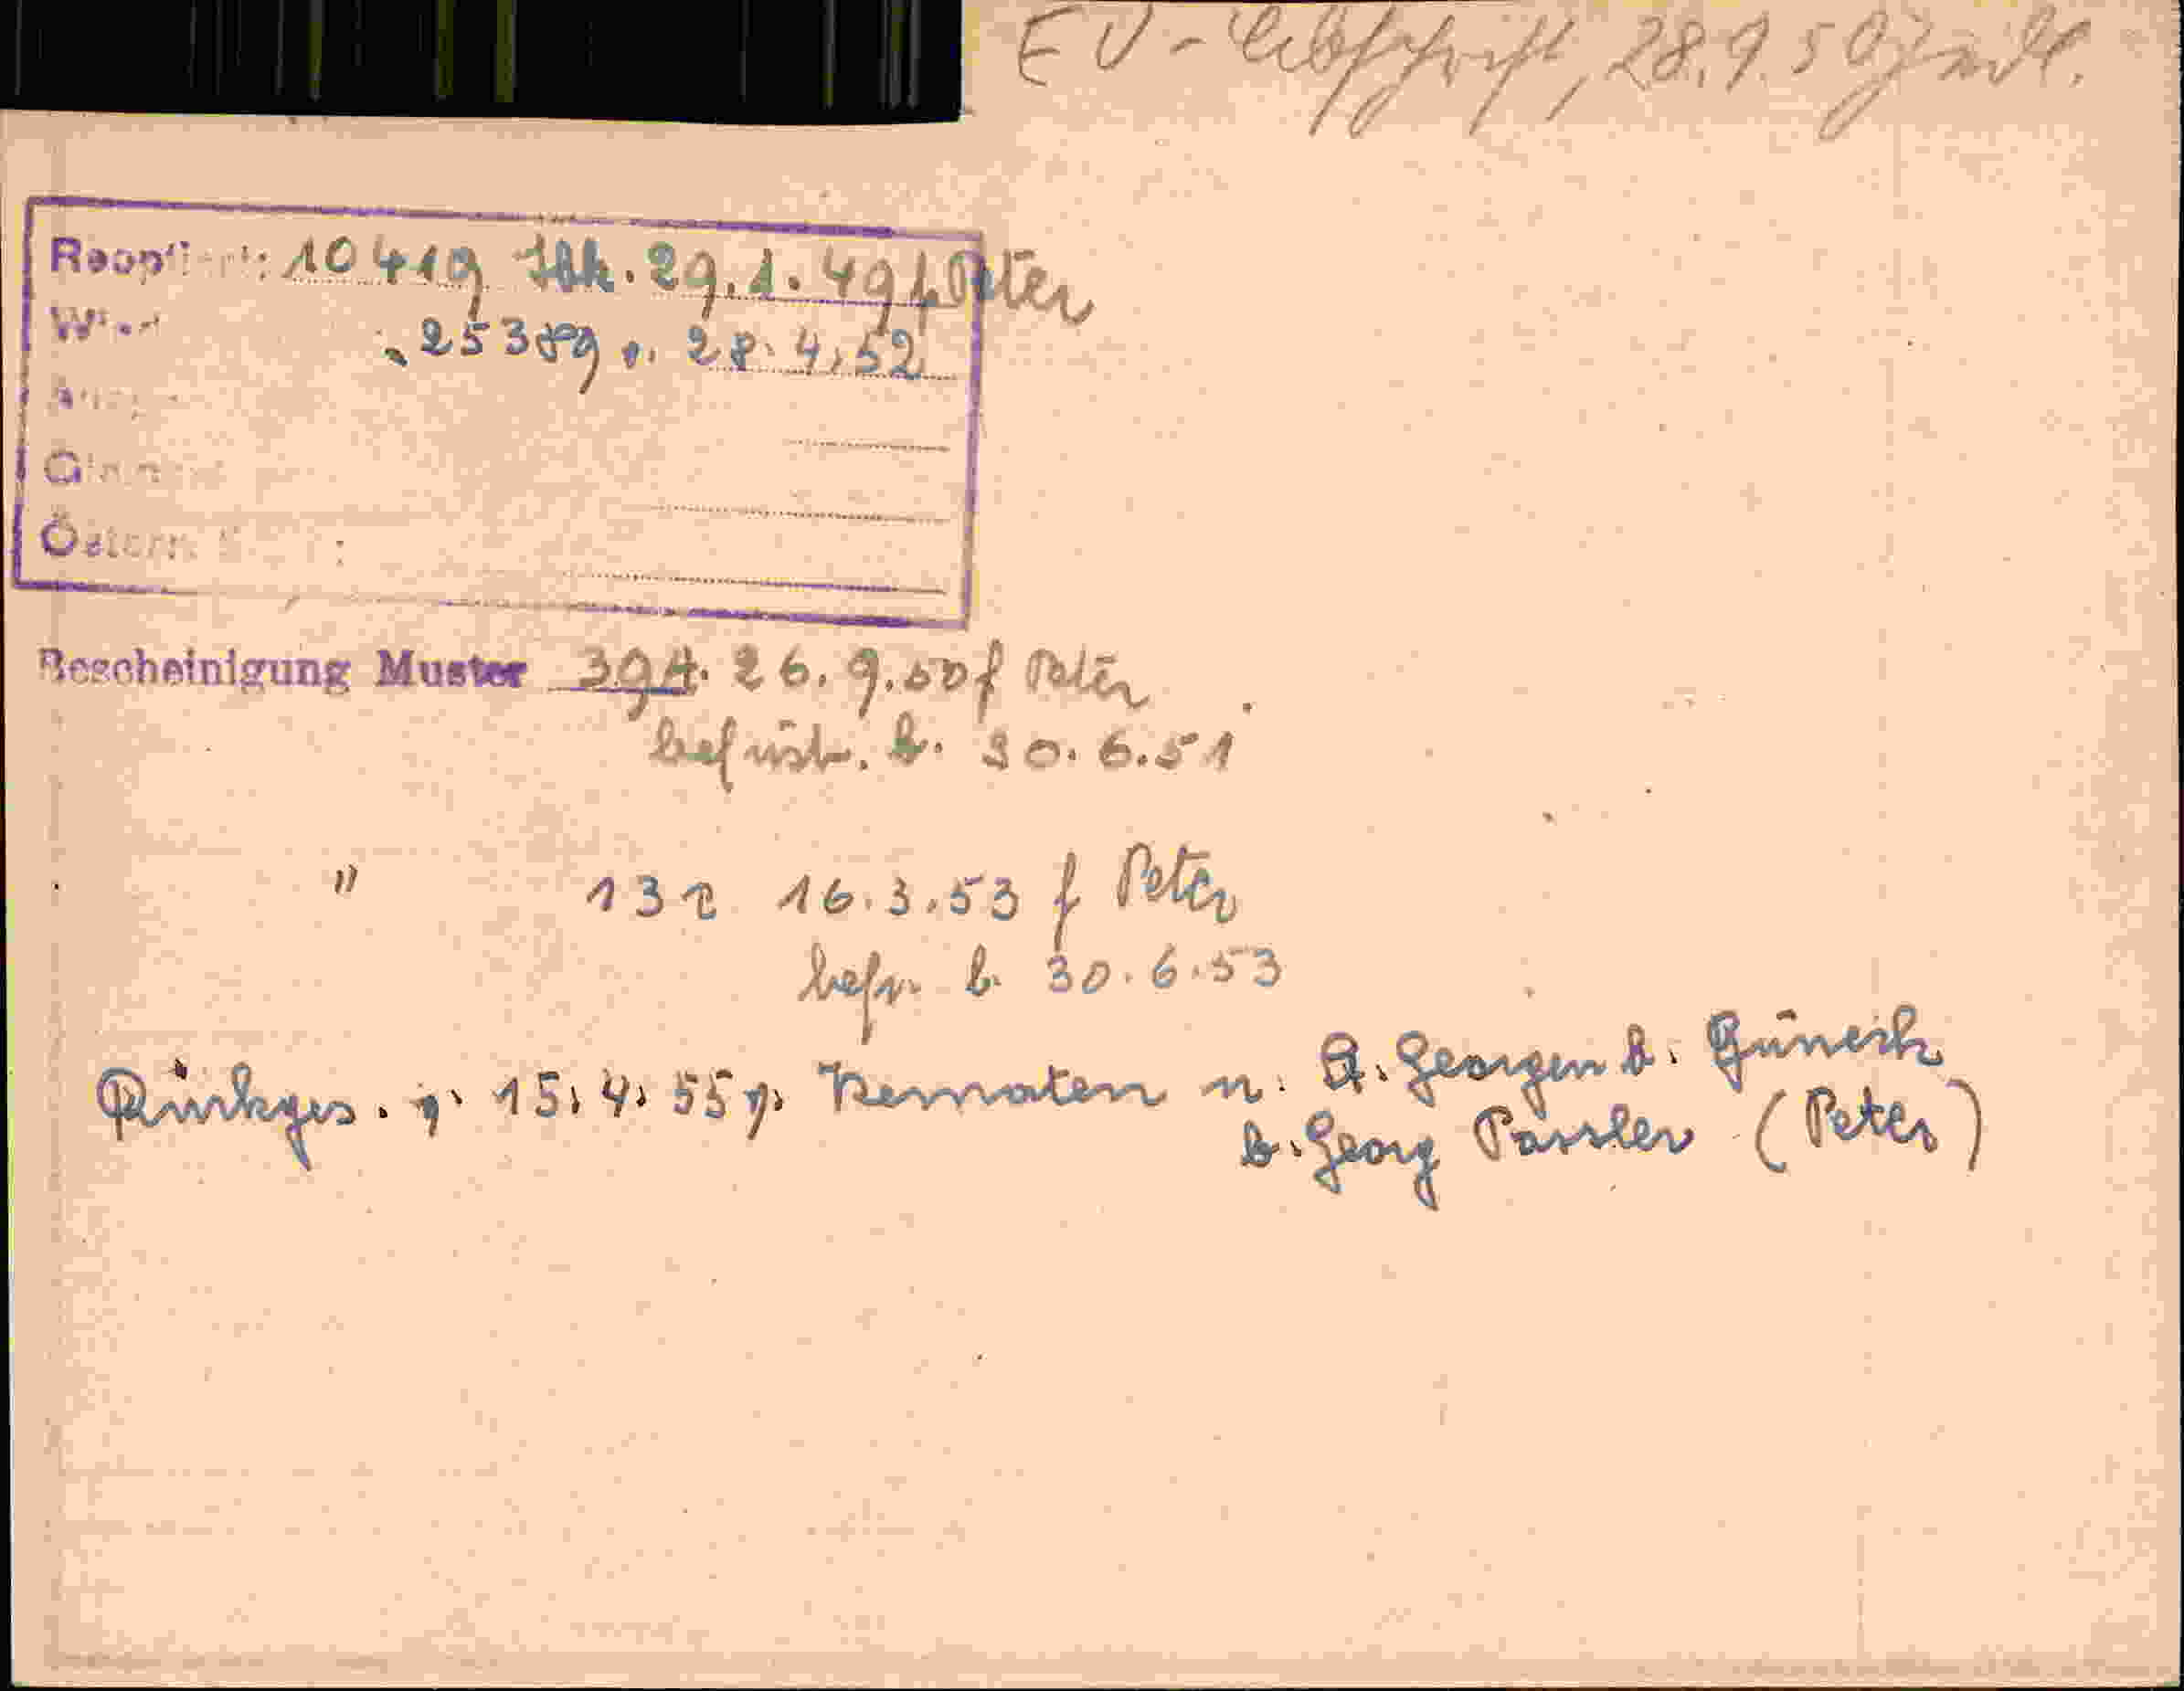 EV-Abschrift, 28.9.50
Reoptiert: 10419 Ibk. 29.1.49 f. Peter
25389 v. 28.4.52
Bescheinigung Muster 39A. 26.9.50 f Peter
befrist. b. 30.6.51
" 13 r 16.3.53 f Peter
befr. b. 30.6.53
Rückges. 15.4.55 v. Kematen n. St. Georgen b. Bruneck
b. Georg Passler (Peter)